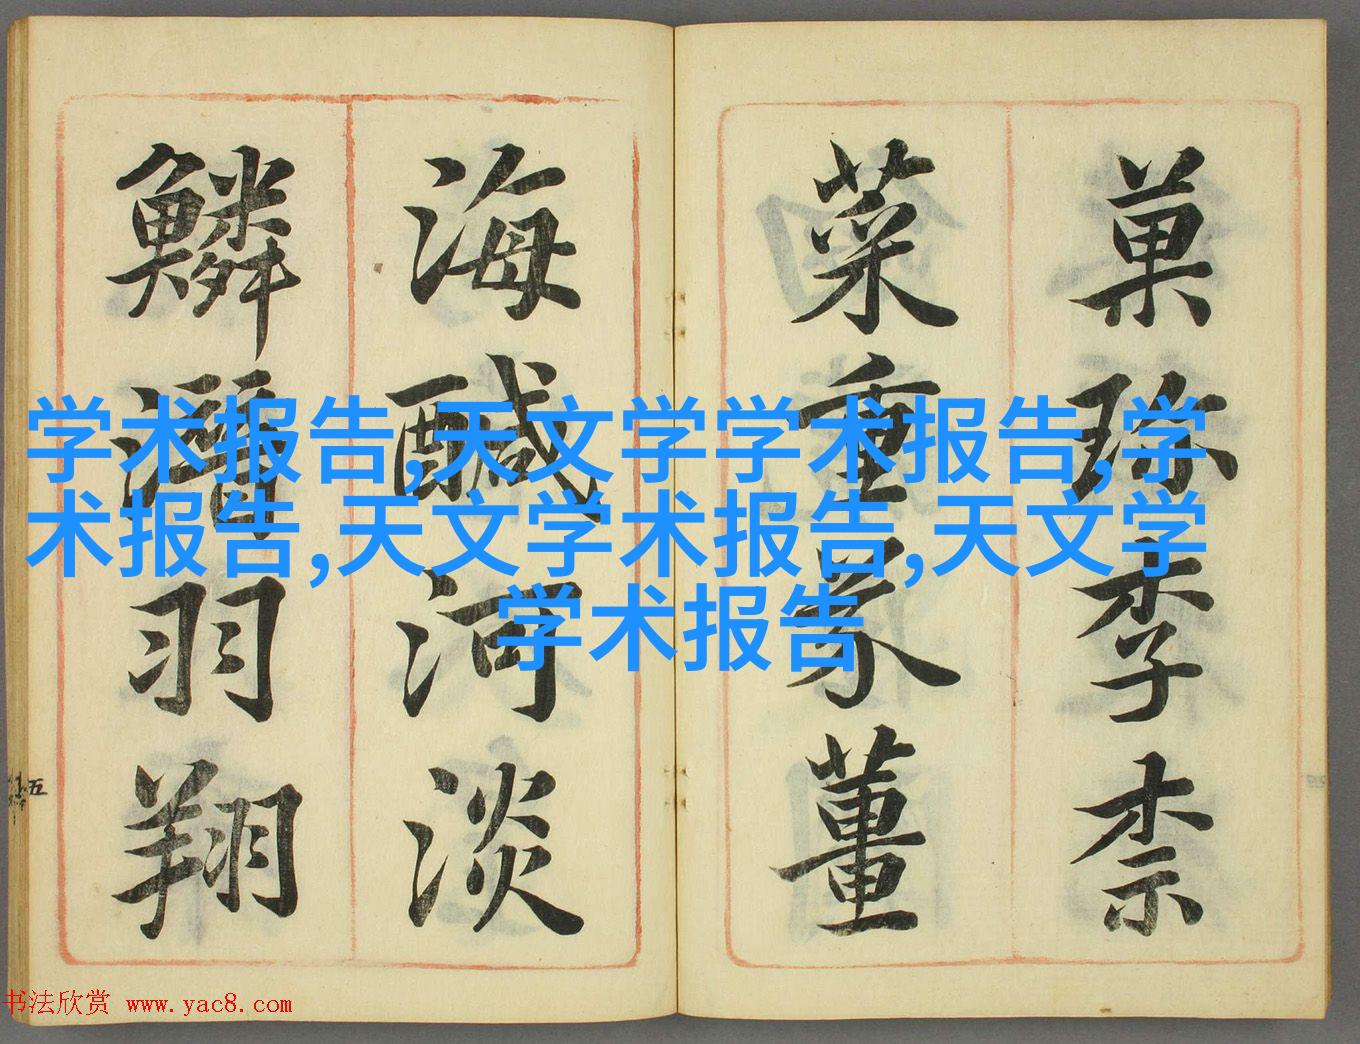 菓珎李柰
菜重芥薑
海醎河淡
鱗潛羽翔
学术报告,天文学学术报告,学
术报告,天文学术报告,天文学
学术报告
五
书法欣赏 www.yac8.com